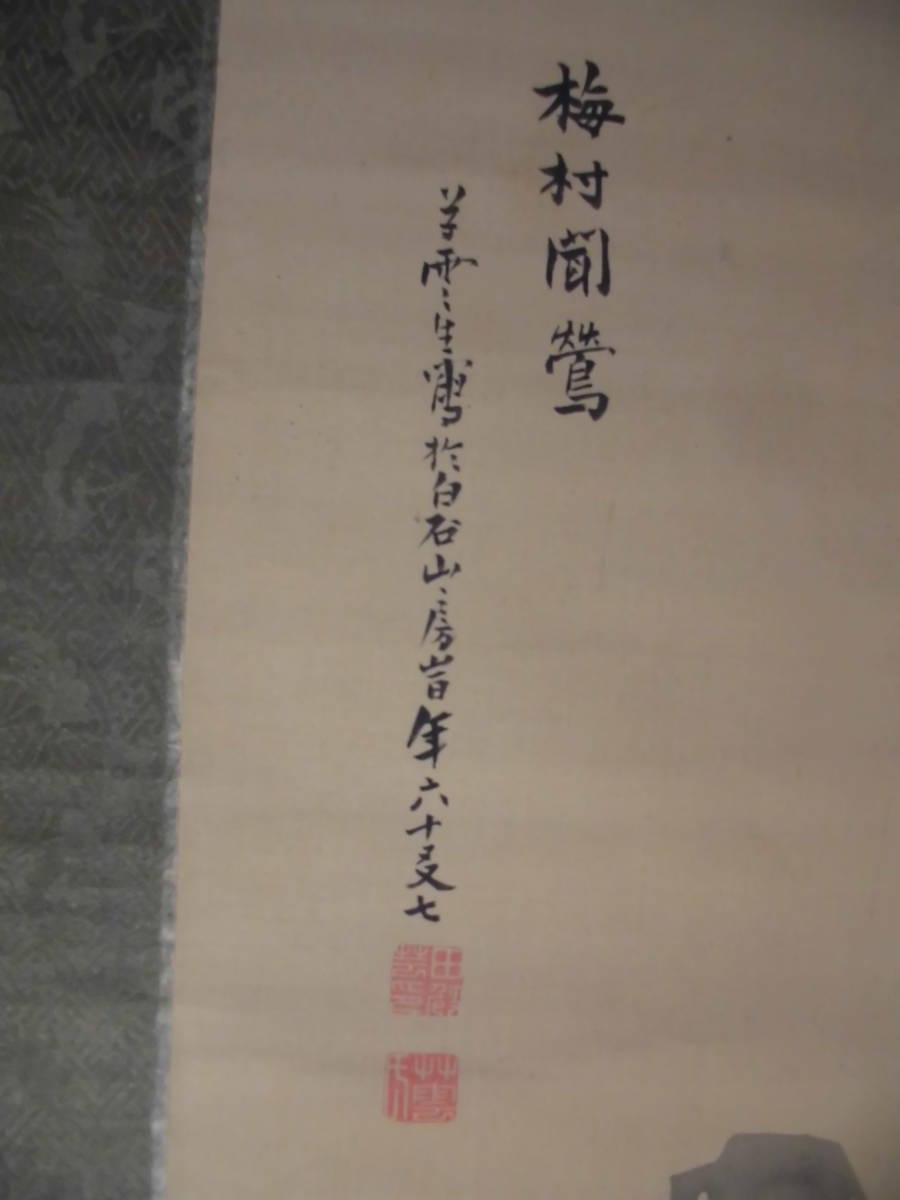 梅村聞鶯
草雲生寫於白石山房旹年六十又七